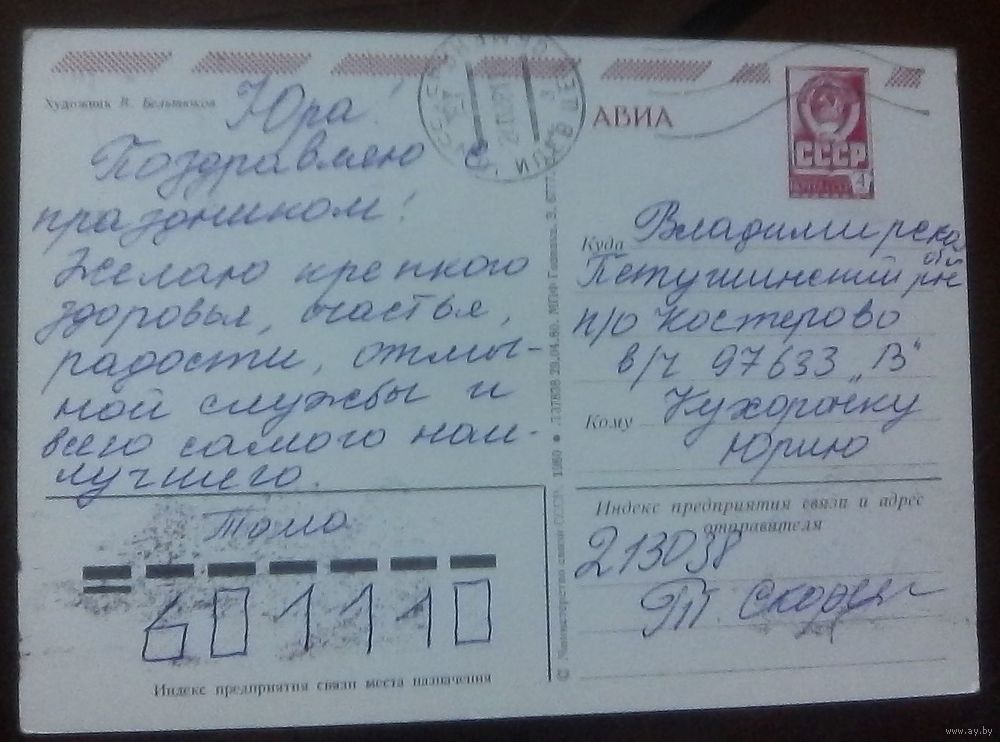 Художник В. Бельтюков
Юра!
Поздравляю с
праздником!
Желаю крепкого
здоровья, счастья,
радости, отлич-
ной службы и
всего самого наи-
лучшего.
Тома
601110
Индекс предприятия связи места назначения
© Министерство связи СССР. 1980
29.04.80. МПФ Гознака. З.
АВИА
СССР
4
Куда Владимирская
обл
Петушинский р-н
п/о Костерёво
в/ч 97633 „В“
Кому Кухоронку
Юрию
Индекс предприятия связи и адрес
отправителя
213038
Т.
www.ay.by